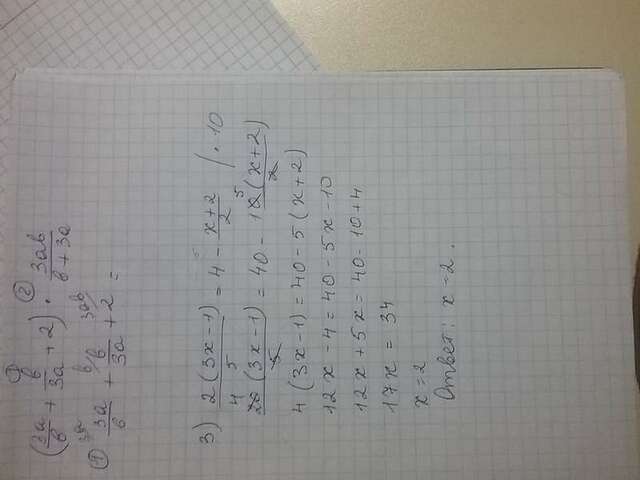 ① ②
(3a/b + b/3a + 2) · 3ab/(b + 3a)
① 3a/b + b/3a + 2 =
3a b 3ab
3) 2(3x-1)/5 = 4 - (x+2)/2 / · 10
20(3x-1)/5 = 40 - 10(x+2)/2
4 5
4(3x-1) = 40-5(x+2)
12x - 4 = 40 - 5x - 10
12x + 5x = 40 - 10 + 4
17x = 34
x = 2
Ответ: x = 2.